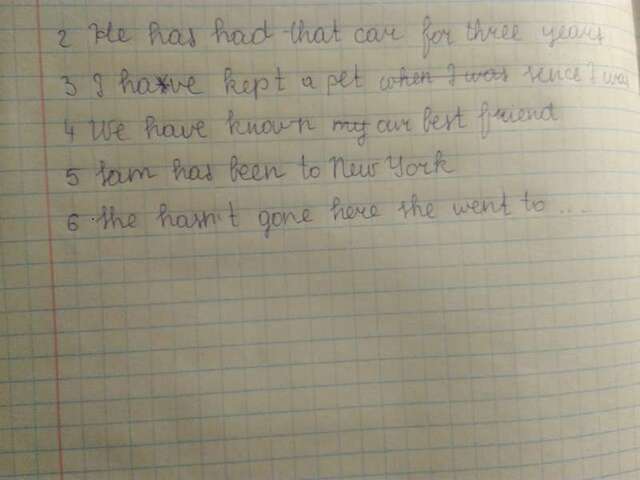 2 He has had that car for three years
3 I have kept a pet when I was sence I was
4 We have known my our best friend
5 Sam has been to New York
6 She hasn't gone here she went to ...